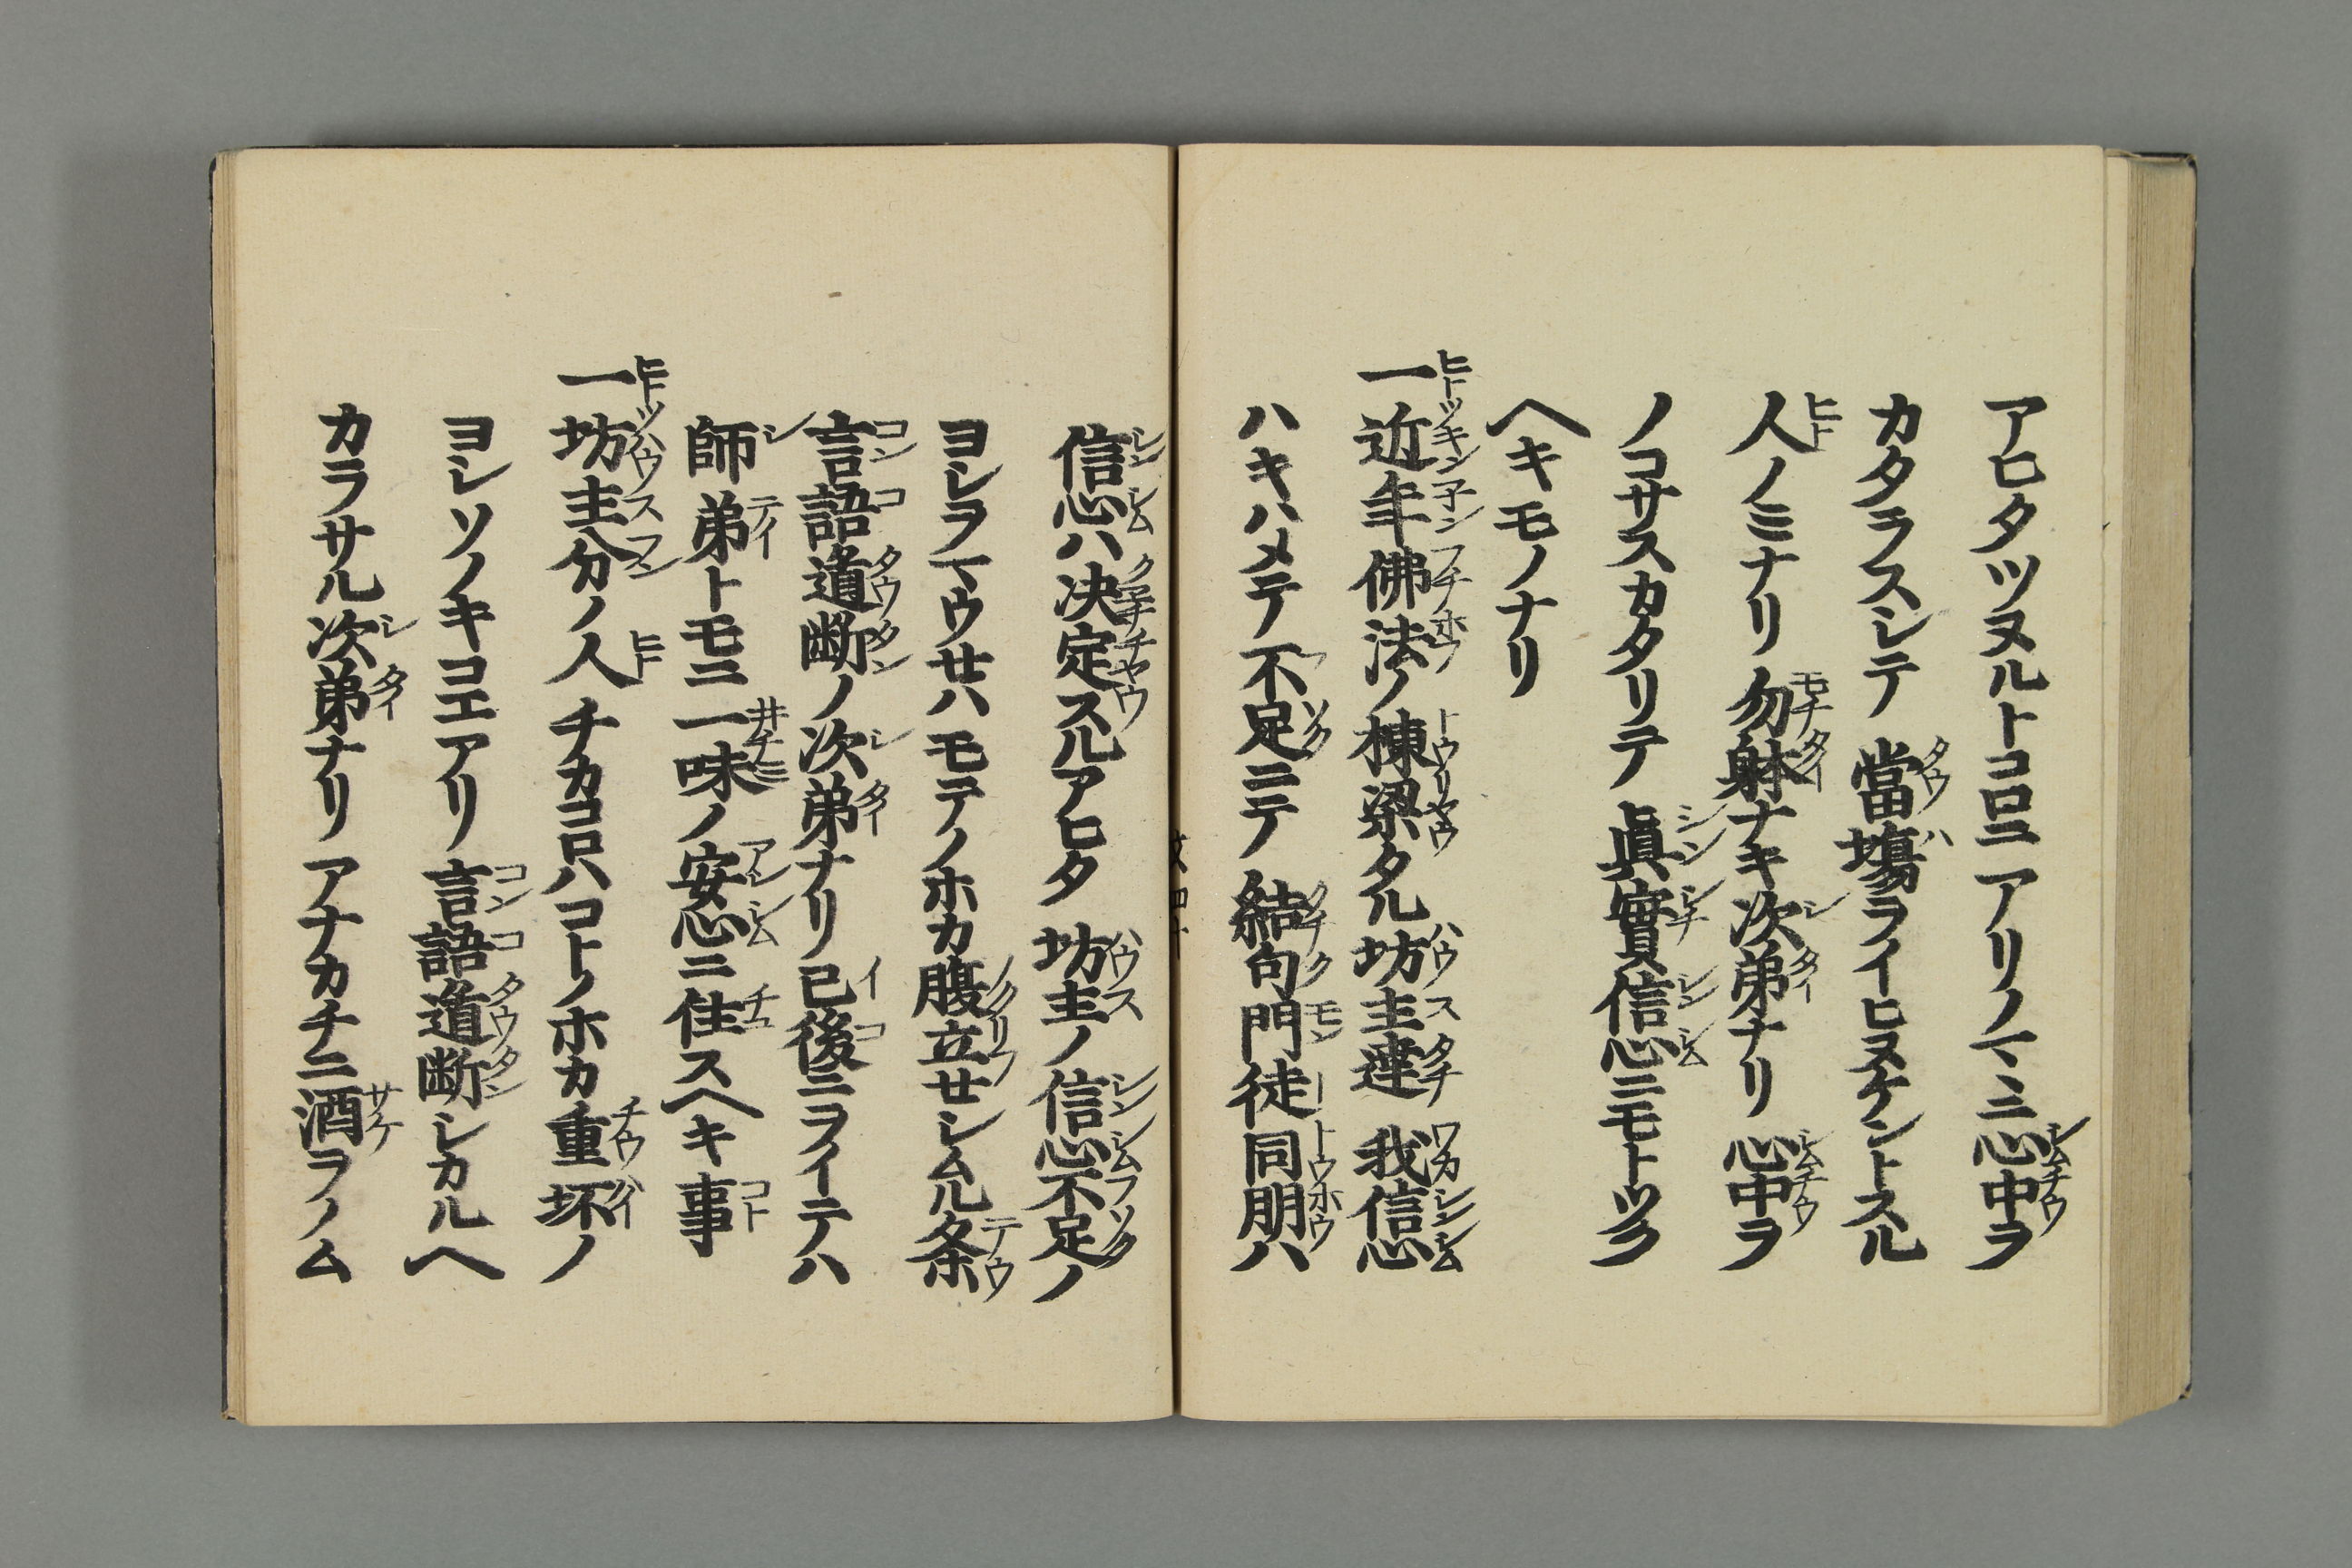 アヒタツヌルトコロニアリノマヽニ心中ヲ
カタラスシテ當塲ヲイヒヌケントスル
人ノミナリ勿躰ナキ次弟ナリ心中ヲ
ノコサスカタリテ眞實信心ニモトツク
ヘキモノナリ
一近年佛法ノ棟梁タル坊主達我信心
ハキハメテ不足ニテ結句門徒同朋ハ
信心ハ决定スルアヒタ坊主ノ信心不足ノ
ヨシヲマウサハモテノホカ腹立セシムル条
言語道断ノ次弟ナリ已後ニヲイテハ
師弟トモニ一味ノ安心ニ住スヘキ事
一坊主分ノ人チカコロハコトノホカ重坏ノ
ヨシソノキコエアリ言語道断シカルヘ
カラサル次弟ナリアナカチニ酒ヲノム